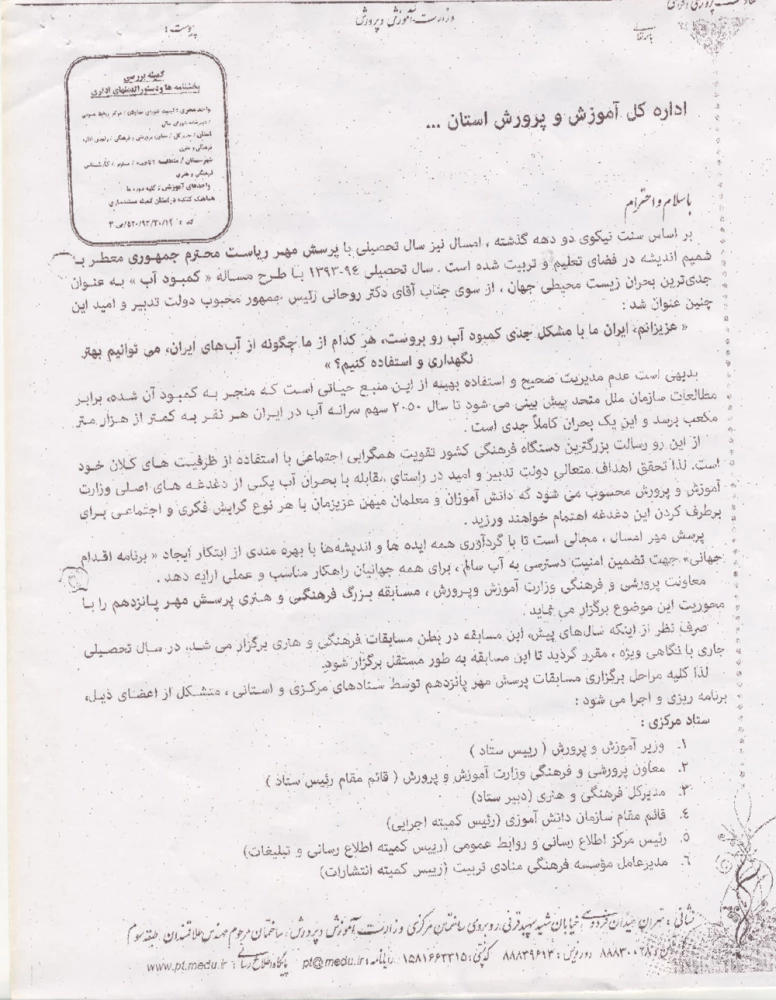 وزارت آموزش و پرورش
پیوست :
کمیته بررسی
بخشنامه ها و دستورالعملهای اداری
اداره کل آموزش و پرورش استان ...
باسلام و احترام
بر اساس سنت نیکوی دو دهه گذشته ، امسال نیز سال تحصیلی با پرسش مهر ریاست محترم جمهوری معطر به
شمیم اندیشه در فضای تعلیم و تربیت شده است . سال تحصیلی ۹۴-۱۳۹۳ با طرح مساله « کمبود آب » به عنوان
جدی‌ترین بحران زیست محیطی جهان ، از سوی جناب آقای دکتر روحانی رئیس جمهور محبوب دولت تدبیر و امید این
چنین عنوان شد :
« عزیزانم، ایران ما با مشکل جدی کمبود آب رو بروست، هر کدام از ما چگونه از آب‌های ایران، می توانیم بهتر
نگهداری و استفاده کنیم؟ »
بدیهی است عدم مدیریت صحیح و استفاده بهینه از این منبع حیاتی است که منجر به کمبود آن شده، برابر
مطالعات سازمان ملل متحد پیش بینی می شود تا سال ۲۰۵۰ سهم سرانه آب در ایران هر نفر به کمتر از هزار متر
مکعب برسد و این یک بحران کاملاً جدی است .
از این رو رسالت بزرگترین دستگاه فرهنگی کشور تقویت همگرایی اجتماعی با استفاده از ظرفیت های کلان خود
است. لذا تحقق اهداف متعالی دولت تدبیر و امید در راستای مقابله با بحران آب یکی از دغدغه های اصلی وزارت
آموزش و پرورش محسوب می شود که دانش آموزان و معلمان میهن عزیزمان با هر نوع گرایش فکری و اجتماعی برای
برطرف کردن این دغدغه اهتمام خواهند ورزید .
پرسش مهر امسال ، مجالی است تا با گردآوری همه ایده ها و اندیشه‌ها با بهره مندی از ابتکار ایجاد « برنامه اقدام
جهانی» جهت تضمین امنیت دسترسی به آب سالم ، برای همه جهانیان راهکار مناسب و عملی ارایه دهد .
معاونت پرورشی و فرهنگی وزارت آموزش وپرورش ، مسابقه بزرگ فرهنگی و هنری پرسش مهر پانزدهم را با
محوریت این موضوع برگزار می نماید
صرف نظر از اینکه سال‌های پیش، این مسابقه در بطن مسابقات فرهنگی و هنری برگزار می شد، در سال تحصیلی
جاری با نگاهی ویژه ، مقرر گردید تا این مسابقه به طور مستقل برگزار شود.
لذا کلیه مراحل برگزاری مسابقات پرسش مهر پانزدهم توسط ستادهای مرکزی و استانی ، متشکل از اعضای ذیل،
برنامه ریزی و اجرا می شود :
ستاد مرکزی :
۱. وزیر آموزش و پرورش ( رییس ستاد )
۲. معاون پرورشی و فرهنگی وزارت آموزش و پرورش ( قائم مقام رئیس ستاد )
۳. مدیرکل فرهنگی و هنری (دبیر ستاد)
۴. قائم مقام سازمان دانش آموزی (رئیس کمیته اجرایی)
۵. رئیس مرکز اطلاع رسانی و روابط عمومی (رییس کمیته اطلاع رسانی و تبلیغات)
۶. مدیرعامل مؤسسه فرهنگی منادی تربیت (رییس کمیته انتشارات)
نشانی : تهران، میدان فردوسی، خیابان شهید سپهبد قرنی، روبروی ساختمان مرکزی وزارت آموزش و پرورش، ساختمان مرحوم مهندس علاقمندان، طبقه سوم
۸۸۸۳۰۰۲۸ دورنویس : ۸۸۸۳۹۶۱۳ کدپستی : ۱۵۸۱۶۶۳۳۱۵ رایانامه : pt@medu.ir پایگاه اطلاع رسانی : www.pt.medu.ir